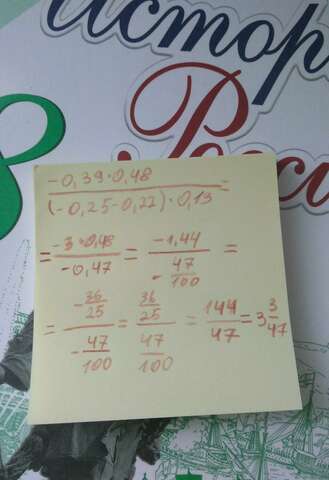 Истор
Росси
8
-0,39·0,48 / (-0,25-0,22)·0,13 =
= -3·0,48 / -0,47 = -1,44 / -47/100 =
= -36/25 / -47/100 = 36/25 / 47/100 = 144/47 = 3 3/47